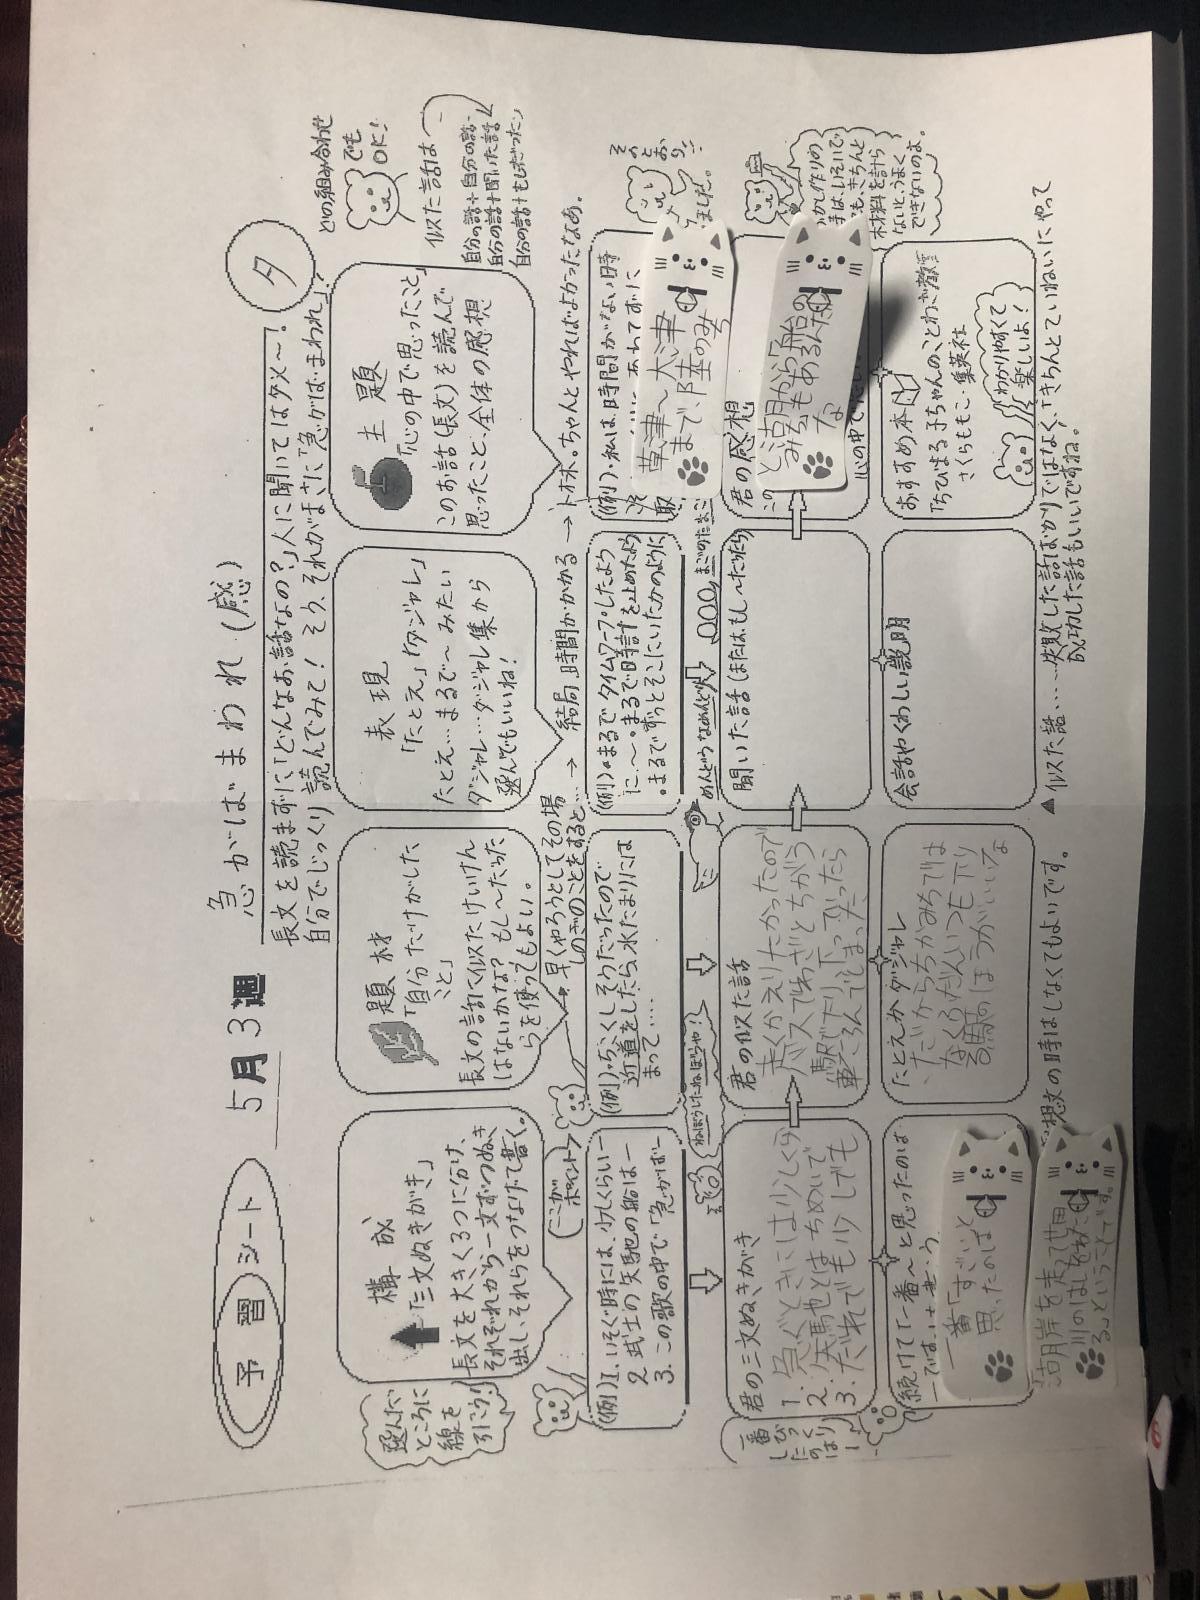 予習シート
5月3週
急がばまわれ(感)
タ
長文を読まずに「どんなお話なの?」人に聞いてはダメ~!
自分でじっくり読んでみて!そう、それがまさに「急がばまわれ」!
選んだ
ところに
線を
引こう!
構成
「三文ぬきがき」
長文を大きく3つに分け、
それぞれから一文ずつぬき
出し、それらをつなげて書く。
題材
「自分だけがした
こと」
長文の話に似たけいけん
はないかな?もし~だった
らを使ってもよい。
表現
「たとえ」「ダジャレ」
たとえ…まるで~みたい
ダジャレ…ダジャレ集から
選んでもいいね!
主題
「心の中で思ったこと」
このお話(長文)を読んで
思ったこと、全体の感想
どの組み合わせ
でも
OK!
似た話は
自分の話+自分の話
自分の話+聞いた話
自分の話+もしだったら
ここが
ポイント
早くやろうとしてその場
しのぎのことをすると…
→結局、時間がかかる
→トホホ。ちゃんとやればよかったなあ。
(例)1. いそぐ時には、少しくらい―
2. 武士の矢馳の船は―
3. この歌の中で「急がば―
(例)・ちこくしそうだったので
近道をしたら、水たまりには
まって……
(例)・まるでタイムワープしたよう
に~ ・まるで時計を止めたよう
・まるでずっとそこにいたかのように
(例)・私は、時間がない時
あわてずに
ました。
そのとおり!!
ねぼうしたねぼちゃ!
めんどうなめんどり
まごのたまご
君の三文ぬきがき
1. 急ぐときには少しくら
2. 矢馬也とはちめいで
3. だれでも少しでも
君の似た話
走くかえりたかったので
バスでわざとちがう
駅で下り、下ったら
車ころんでしまった
聞いた話(または、もし~だったら)
君の感想
この
心の中で
草津~大津
まで、陸のみち
と湖からの船の
みちもあるんだ
な
一番
びっくり
したのは
続けて「一番~と思ったのは
―です。」
一番「すごいと
思ったのは
湖岸を走って
川のはしをわた
る」ということです。
たとえかダジャレ
だからちかみちでは
なくふだんいつも下り
る駅のほうがいいな
会話やくわしい説明
おすすめ本
「ちびまる子ちゃんのことわざ教室」
さくらももこ・集英社
わかりやすくて
楽しいよ!
おかし作りの
時は、いそいで
ても、きちんと
材料を計ら
ないと、うまく
できないのよ。
感想文の時はしなくてもよいです。
▲似た話……失敗した話ばかりではなく、「きちんとていねいにやって
成功した話もいいですね。